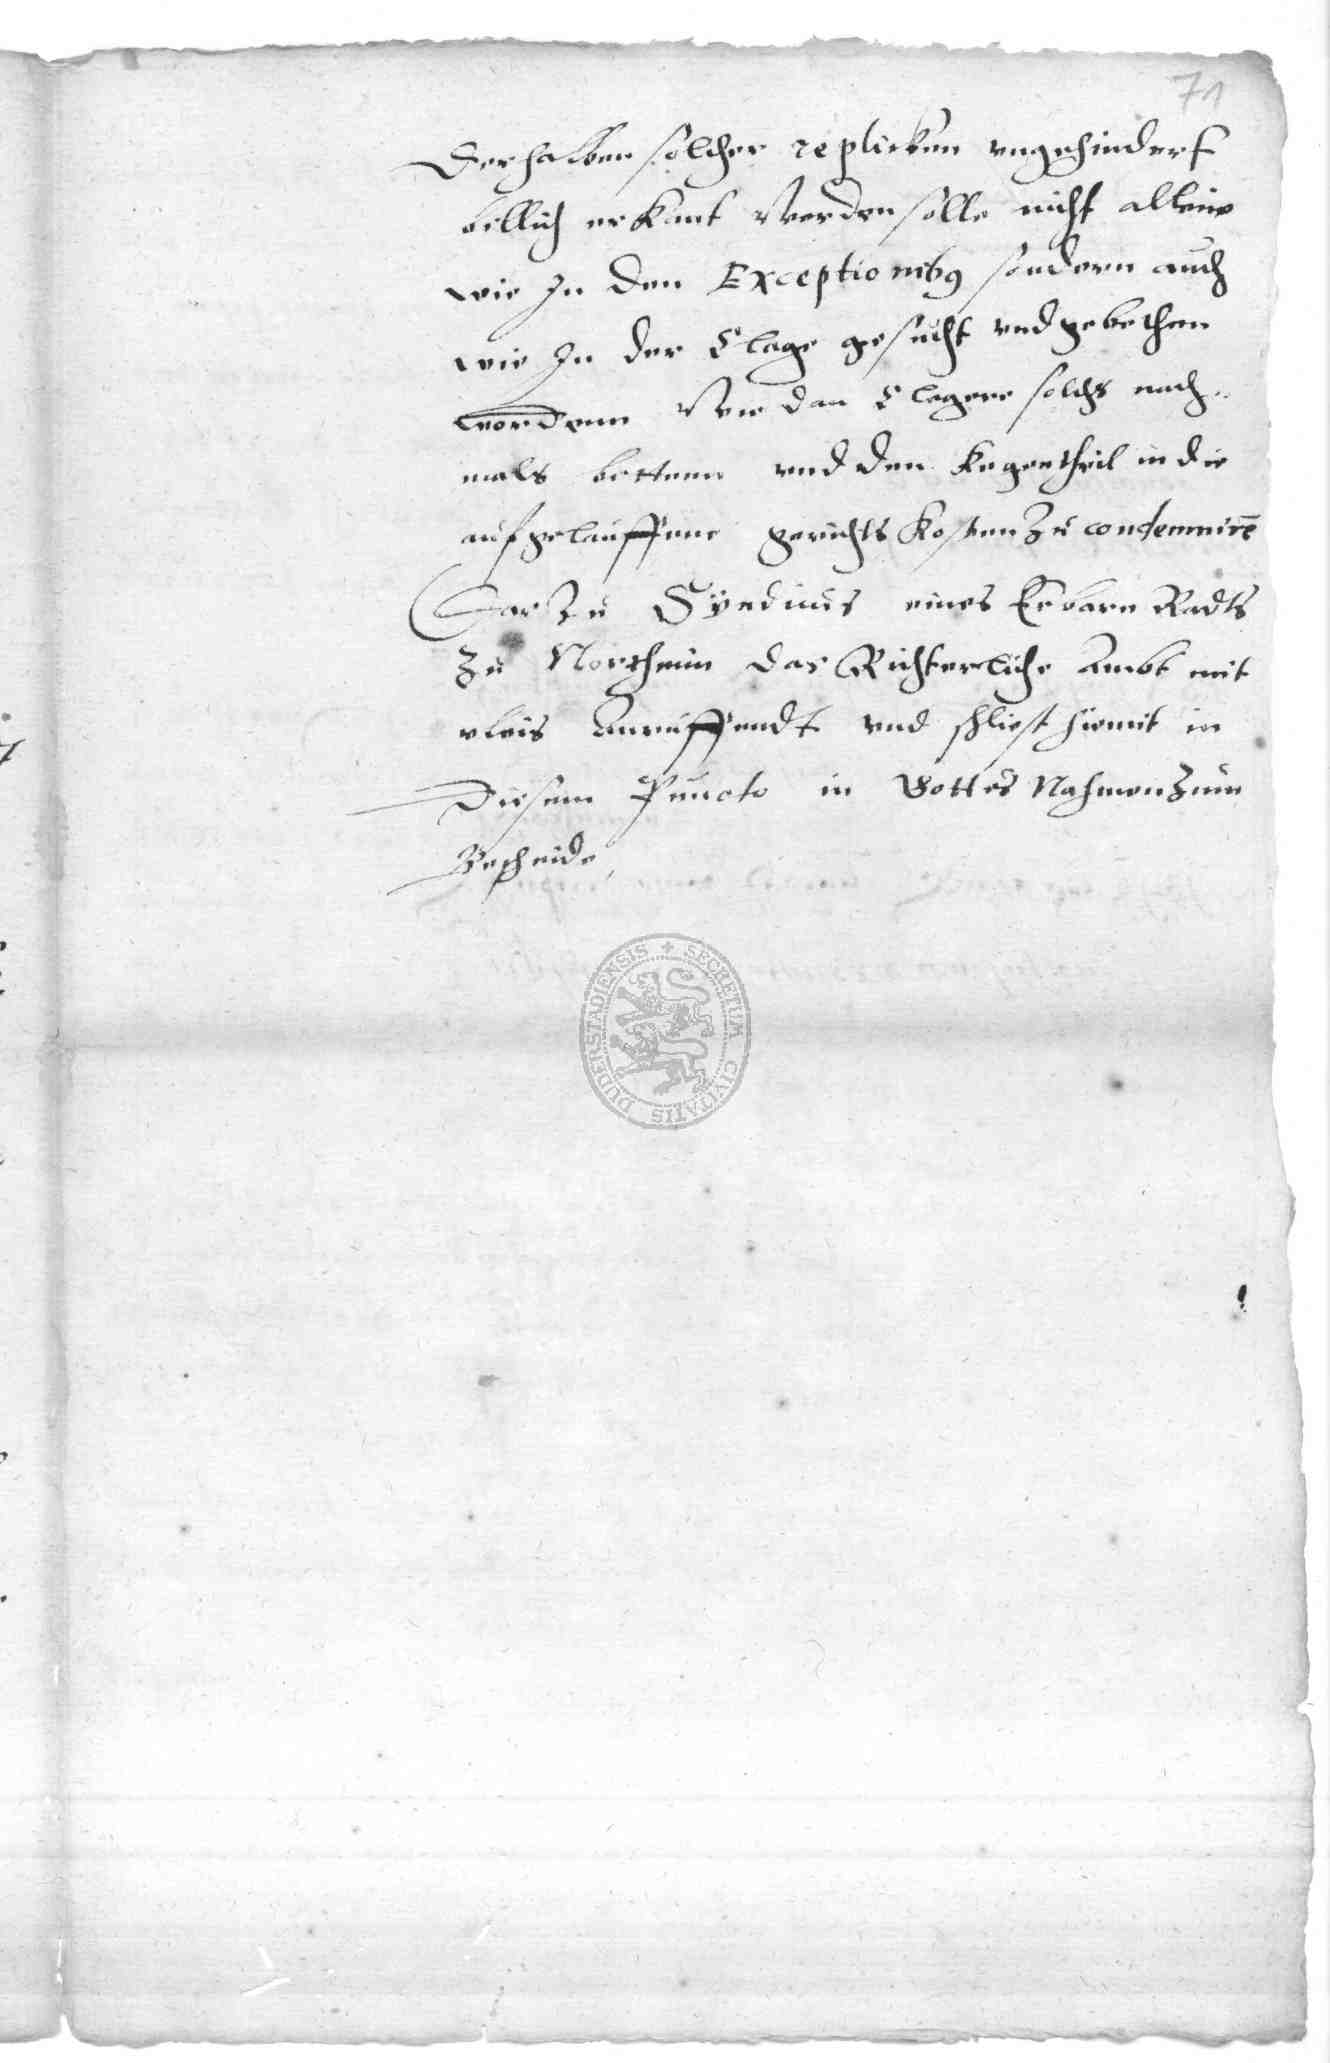 71
Derhalben solcher replicken vngehindert
billich erkant Werden solle nicht alleine
wie In den Exceptionibq sondern auch
wie In der Clage gesucht vnd gebethen
wordenn Wie dan Clegere solchs nach„
mals bettenn vnd den Kegentheil in die
aufgelauffene gerichts Kosten Zu condemnirē
Dar Zu Syndicus eines Erbarn Radts
Zu Northeim das Richterliche Ambt mit
vleis Anruffendt vnd schliest hiemit in
Diesem Puncto in Gottes Nahmen Zum
Bescheide,
SECRETUM CIVITATIS DUDERSTADIENSIS